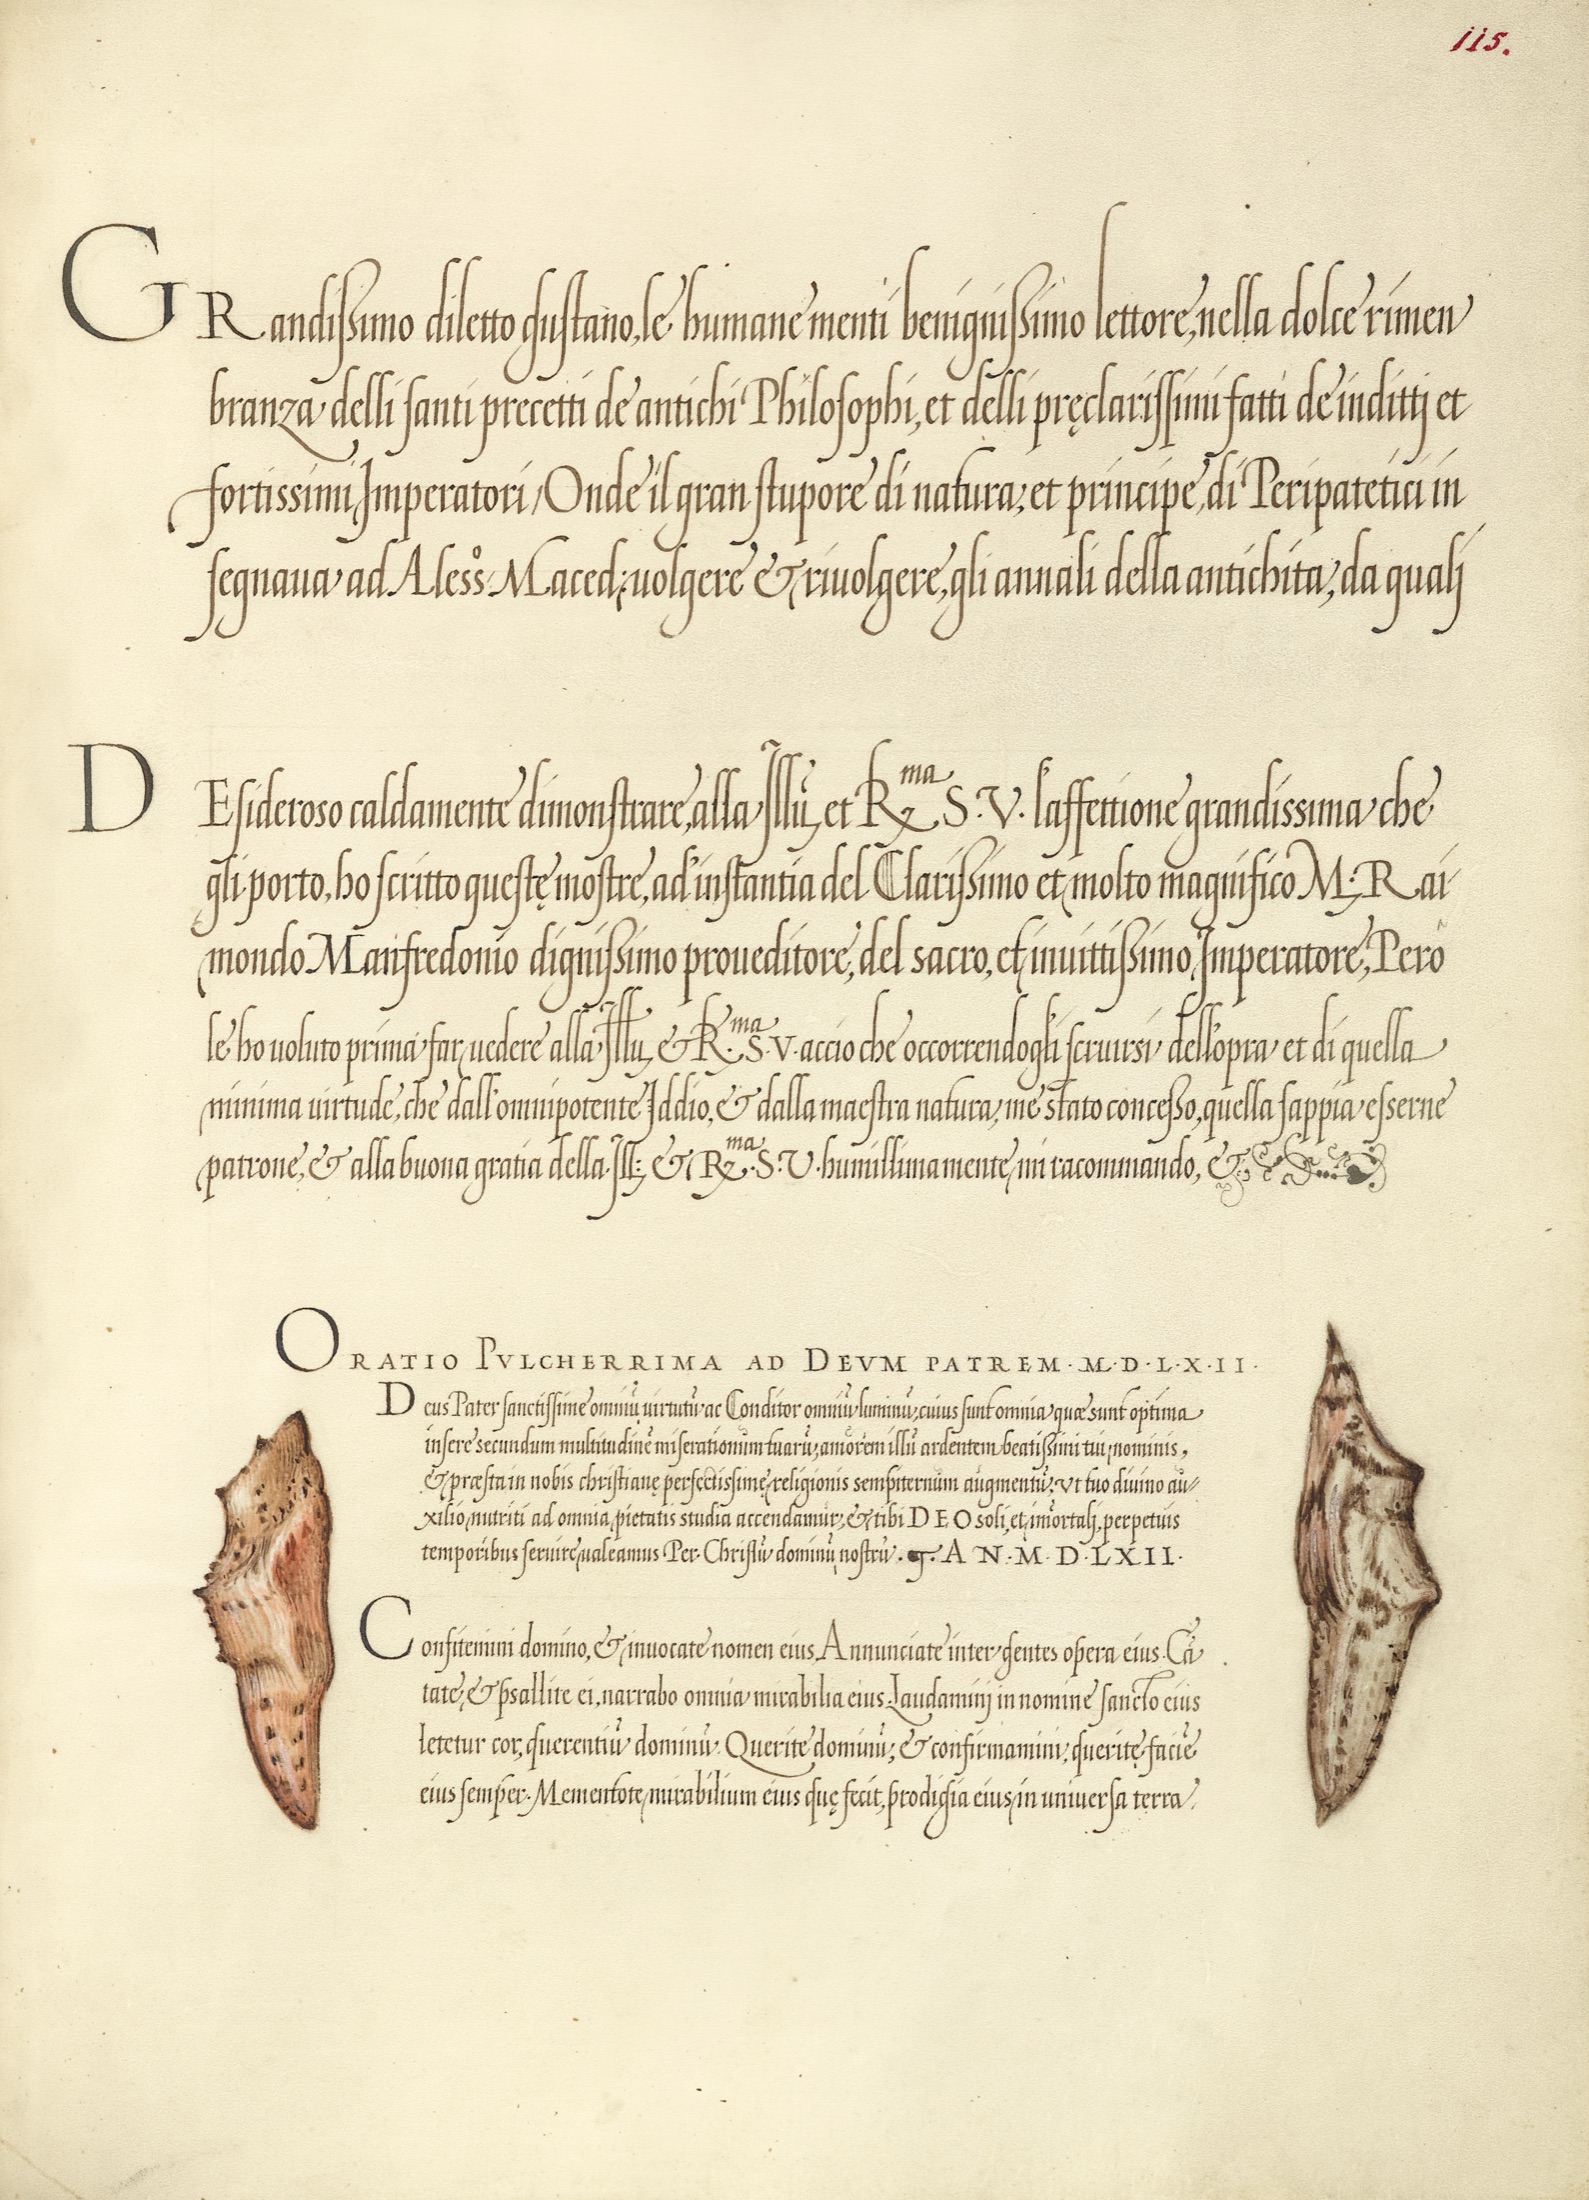 115.
GRandissimo diletto gustano, le humane menti benignissimo lettore, nella dolce rimen
branza delli santi precetti de antichi Philosophi, et delli pręclarissimi fatti de inditti et
fortissimi Imperatori, Onde il gran stupore di natura, et principe, di Peripatetici in
segnaua ad Aless.º Maced; uolgere & riuolgere, gli annali della antichita, da quali
DEsideroso caldamente dimonstrare, alla Illũ, et R.ma S. V. l'affettione grandissima che
gli porto, ho scritto questę mostre, ad instantia del Clarissimo et molto magnifico M: Rai
mondo Manfredonio dignissimo proueditore, del sacro, et inuittissimo Imperatore, Però
le ho uoluto prima far uedere alla Illũ & R.ma S. V. accio che occorrendogli seruirsi dell'opra et di quella
minima uirtude, che dall'omnipotente Iddio, & dalla maestra natura, me stato concesso, quella sappia esserne
patrone, & alla buona gratia della Ill: & R.ma S. V. humillimamente mi racommando, &
ORATIO PVLCHERRIMA AD DEVM PATREM · M · D · L · X · II ·
Deus Pater sanctissime omniũ uirtutũ ac Conditor omniũ luminũ, cuius sunt omnia quæ sunt optima
insere secundum multitudinẽ miserationum tuarũ, amorem illũ ardentem beatissimi tui nominis,
& præsta in nobis christianę perfectissimę religionis sempiternum augmentũ, vt tuo diuino au-
xilio nutriti ad omnia pietatis studia accendamur, & tibi DEO soli, et im̃ortali, perpetuis
temporibus seruire ualeamus Per Christũ dominũ nostrũ. AN · M · D · LXII ·
Confitemini domino, & inuocate nomen eius Annunciate inter gentes opera eius. Cã
tate, & psallite ei, narrabo omnia mirabilia eius. Laudamini in nomine sancto eius
letetur cor, querentiũ dominũ. Querite dominũ, & confirmamini, querite faciẽ
eius semper. Mementote mirabilium eius quę fecit, prodigia eius in uniuersa terra.